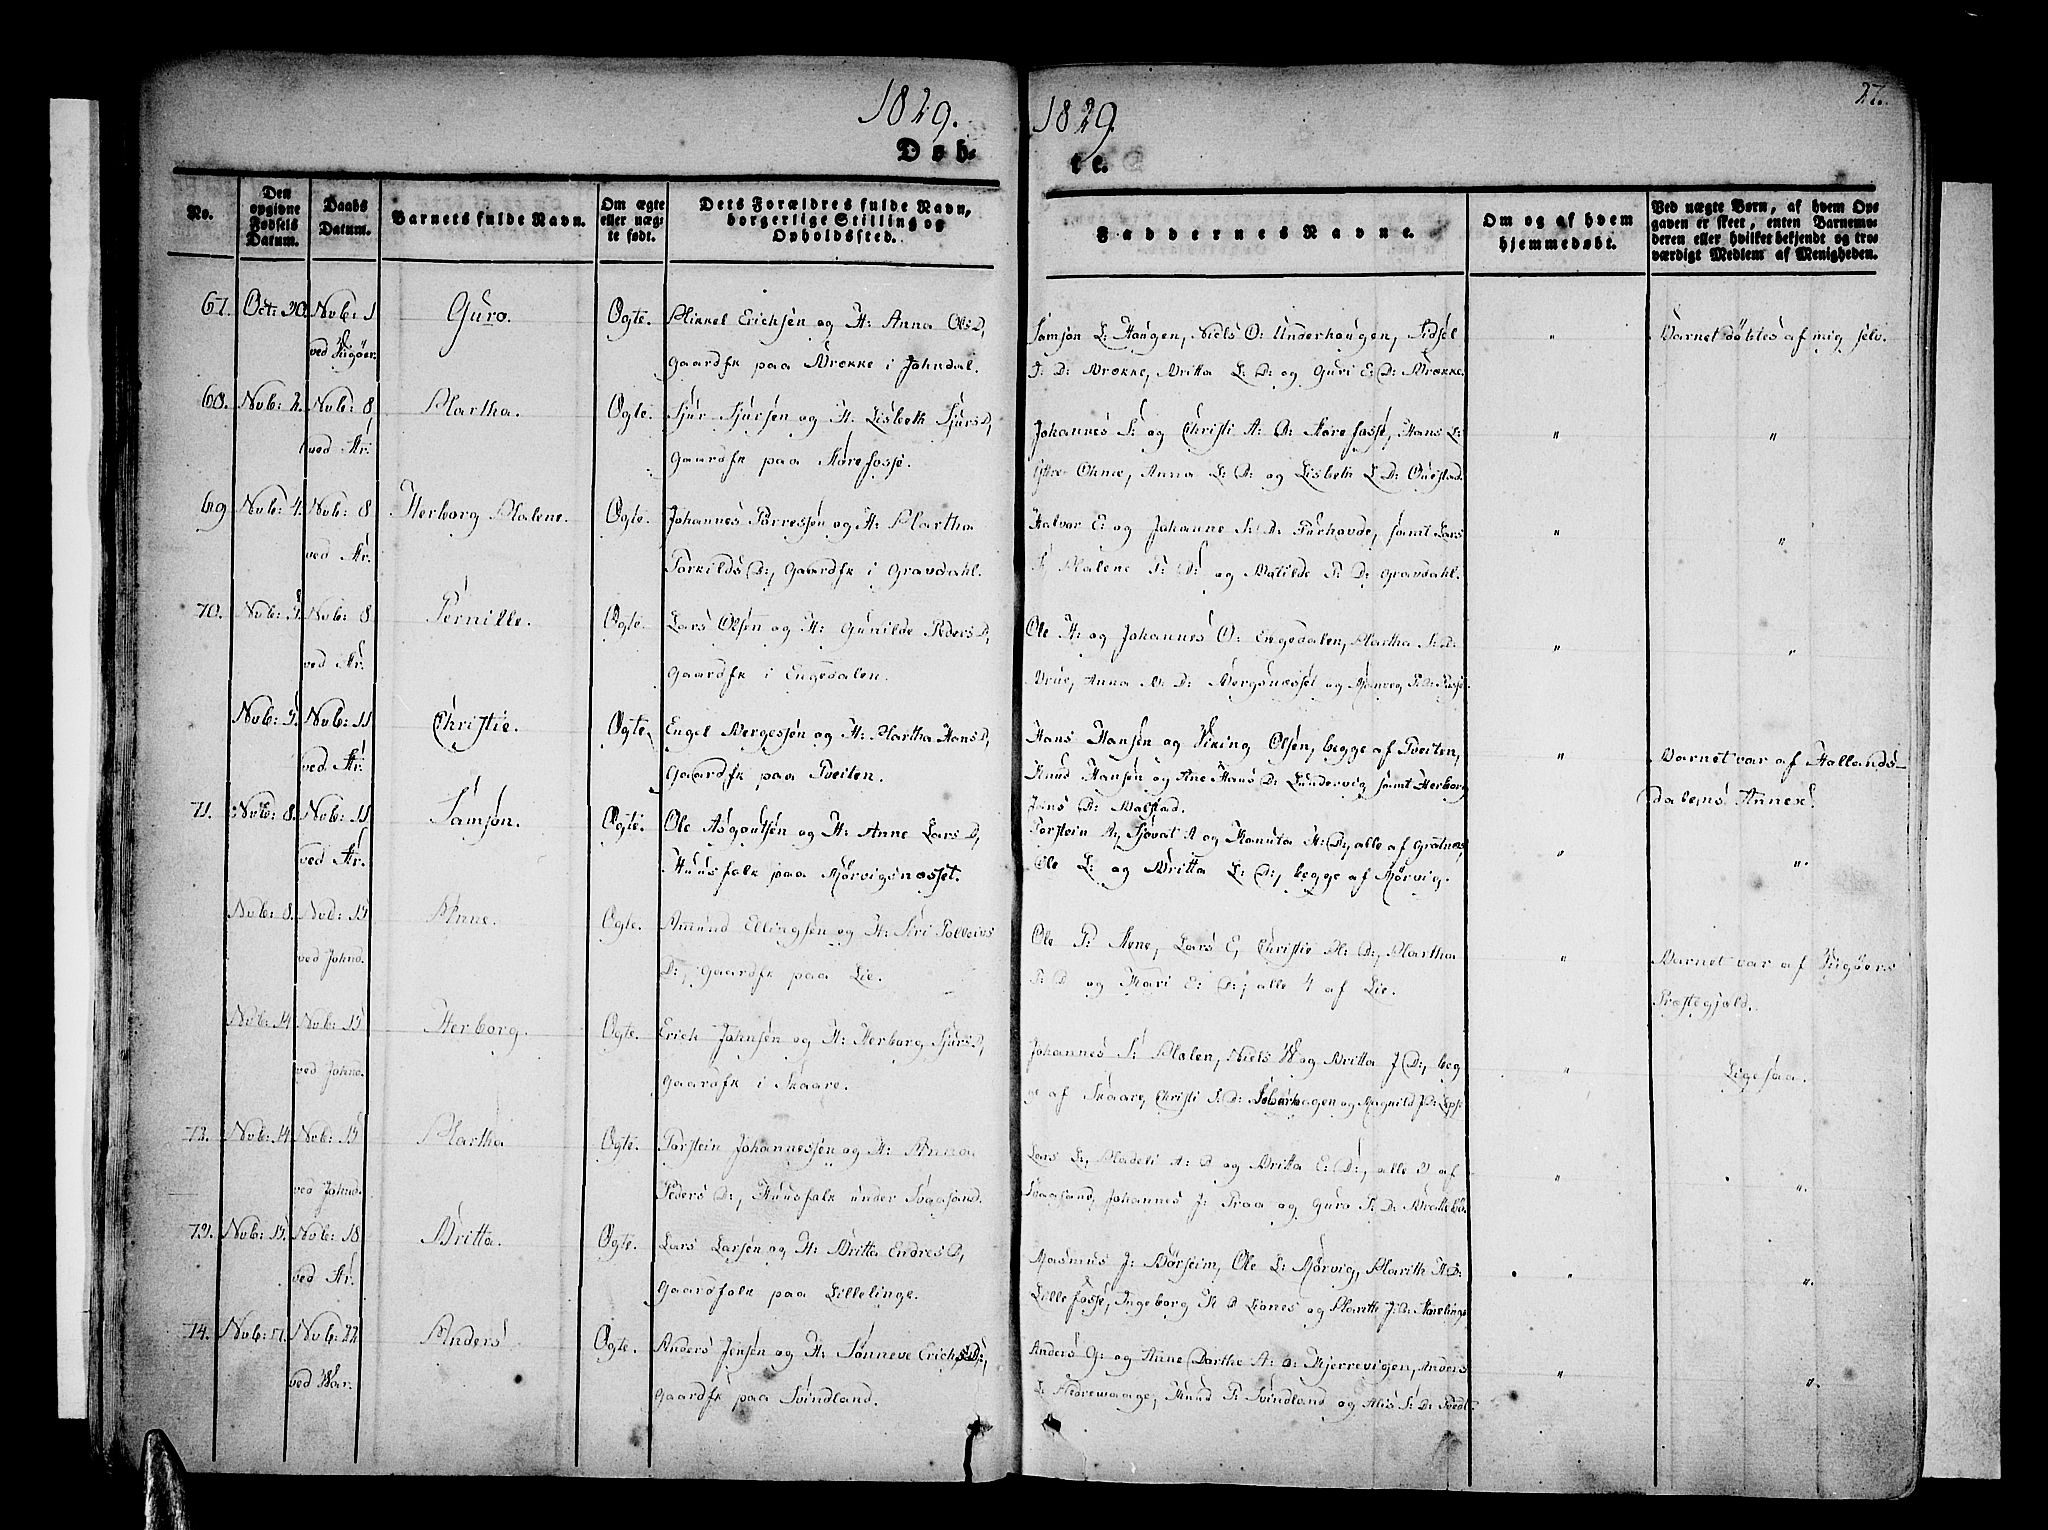 1829.
Døb-
1829.
te.
27.
No.
Den opgivne Fødsels Datum.
Daabs Datum.
Barnets fulde Navn.
Om ægte eller uægte født.
Dets Forældres fulde Navn, borgerlige Stilling og Opholdssted.
Faddernes Navne.
Om og af hvem hjemmedøbt.
Ved uægte Børn, af hvem Opgaven er skeet, enten Barnemoderen eller hvilket bekjendt og troværdigt Medlem af Menigheden.
67. Oct: 30. Nvb: 1 Guro. Ægte. Mikkel Ericksen og H: Anna Ols D,
Gaardfk paa Brække i Johndal.
Samson L: Haugen, Niels O: Underhaugen, Sidsel
D: Brække, Britta L: D: og Guri E: D: Brække.
" Barnet döbtes af mig selv.
68. Nvb: 2. Nvb: 8 ved Str. Martha. Ægte. Sjur Sjursen og H. Lisbeth Sjurs D,
Gaardfk paa Størefosse.
Johannes S: og Christi A: D: Størefosse, Hans L:
Anna L: D: og Lisbeth L D:
" "
69 Nvb: 4. Nvb: 8 ved Str. Herborg Malene. Ægte. Johannes Torressen og H: Martha
Torkilds D:, Gaardfk i Gravdahl.
Halvor E: og Johanne S: D: Furhovde, samt Lars
Malene T: D: og D: Gravdahl.
" "
70. Nvb: 5. Nvb: 8 ved Str. Pernille. Ægte. Lars Olsen og H: Gunilde Peders D,
Gaardfk i Engedalen.
Ole H: og Johannes O: Engedalen, Martha S: D:
Anna D: og
" "
Nvb: 5. Nvb: 11 ved Str. Christie. Ægte. Engel Bergessen og H: Martha Hans D,
Gaardfk paa Tveiten.
Hans Hansen og Viking Olsen, begge af Tveiten,
Knud Hansen og Ane Hans D: Lundervig samt Herborg
Jens D: Malstad.
" Barnet var af Hallands-
dalens Annex.
71. Nvb: 8. Nvb: 11 ved Str. Samson. Ægte. Ole Asgoutsen og H: Anne Lars D,
Huusfalk paa Mørvigsnæsset.
Torstein A, Sjovat A og Kanuta H: D:, alle af Gratnæs,
Ole L: og Britta L: D:, begge af Mørvig.
" "
Nvb: 8. Nvb: 15 ved Johnd. Anne. Ægte. Amund Ellingsen og H: Siri Tolleivs
D:, Gaardfk paa Lie.
Ole T: Stene, Lars E, Christie M: D:, Martha
T: D og Kari E: D:, alle 4 af Lie.
" Barnet var af
Præstegjæld.
Nvb: 14 Nvb: 15 ved Johnd. Herborg. Ægte. Erick Johnsen og H: Herborg Sjurs D,
Gaardfk i Skaare.
Johannes S: Malen, Niels og Britta J D:, beg
ge af Skaare, Christi S. D: og Magnild
" Ligesaa.
72. Nvb: 14. Nvb: 15 ved Johnd. Martha Ægte. Torstein Johannessen og H: Anna
Peders D:, Huusfalk under Svaasand.
Lars L, Madeli A: D og Britta E: D:, alle 3 af
Svaasand, Johannes J: Traa og Guro S: D: Bratteb
" "
73. Nvb: 15. Nvb: 18 ved Str. Britta. Ægte. Lars Larsen og H: Britta Endres D,
Gaardfolk paa Lillelinge.
Rasmus J: Børseim, Ole L: Mørvig, Marith H D:
Lillefosse, Ingeborg K D Lianes og Marith J: D:
" "
74. Nvb: 17. Nvb: 22 ved Anders Ægte. Anders Jensen og H: Sønneve Erichs D:,
Gaardfk paa Svindland.
Anders G: og Anne Dorthe A: D: Kjerrevigen, Anders
L: Hedremaage, Knud T: Svindland og Alis S: D:
" "